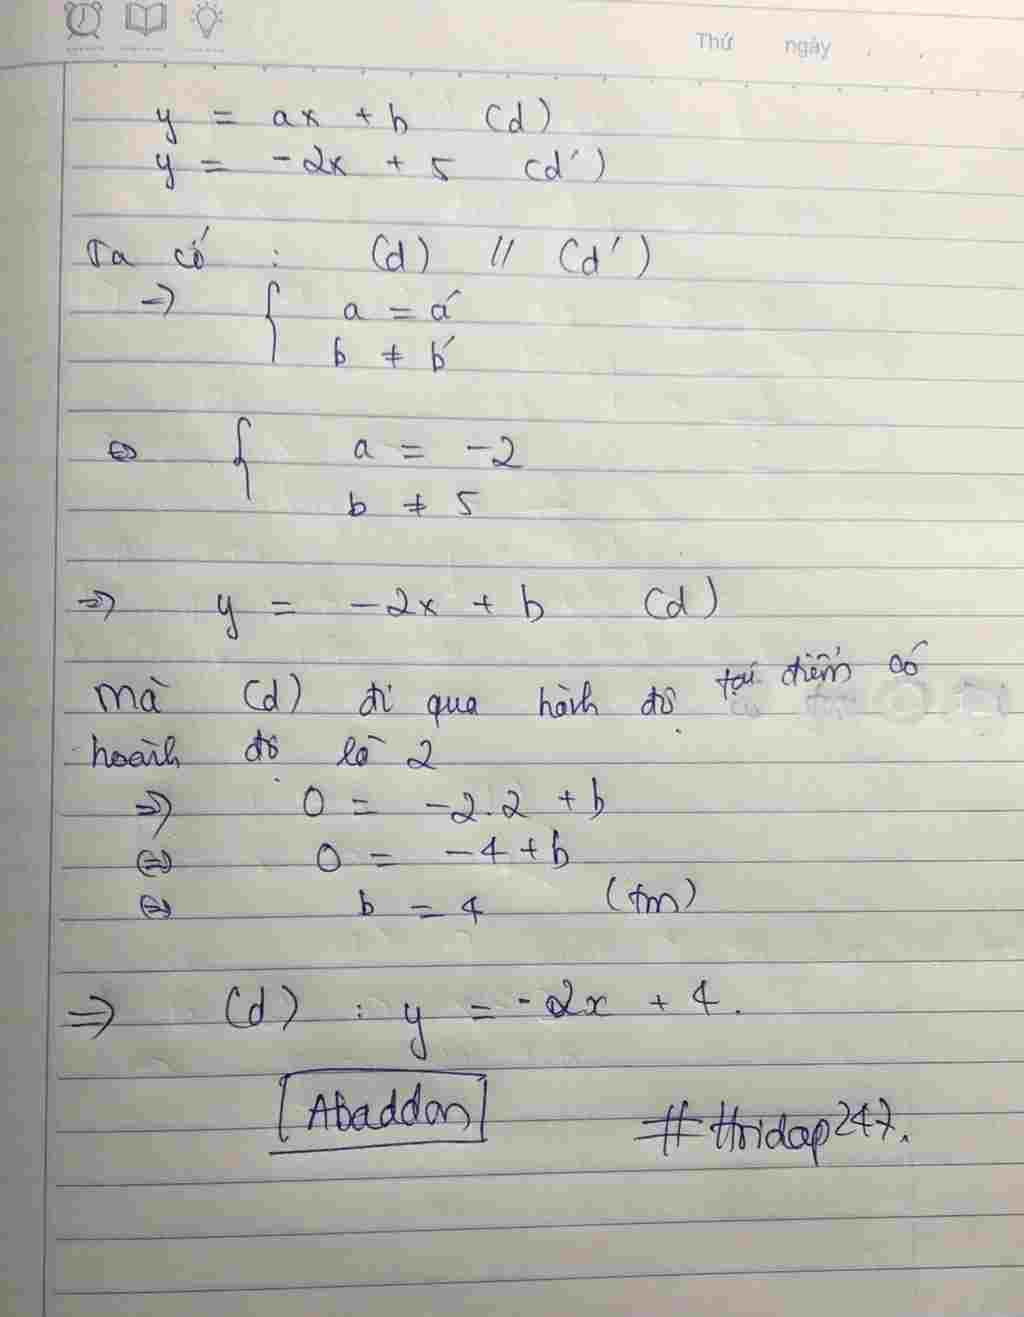 Thứ ngày
y = ax + b (d)
y = -2x + 5 (d')
Ta có : (d) // (d')
=> { a = a'
b ≠ b'
<=> { a = -2
b ≠ 5
=> y = -2x + b (d)
mà (d) đi qua hành độ tại điểm có
hoành độ là 2
=> 0 = -2.2 + b
<=> 0 = -4 + b
<=> b = 4 (tm)
=> (d) : y = -2x + 4.
Abaddon #Hoidap247.